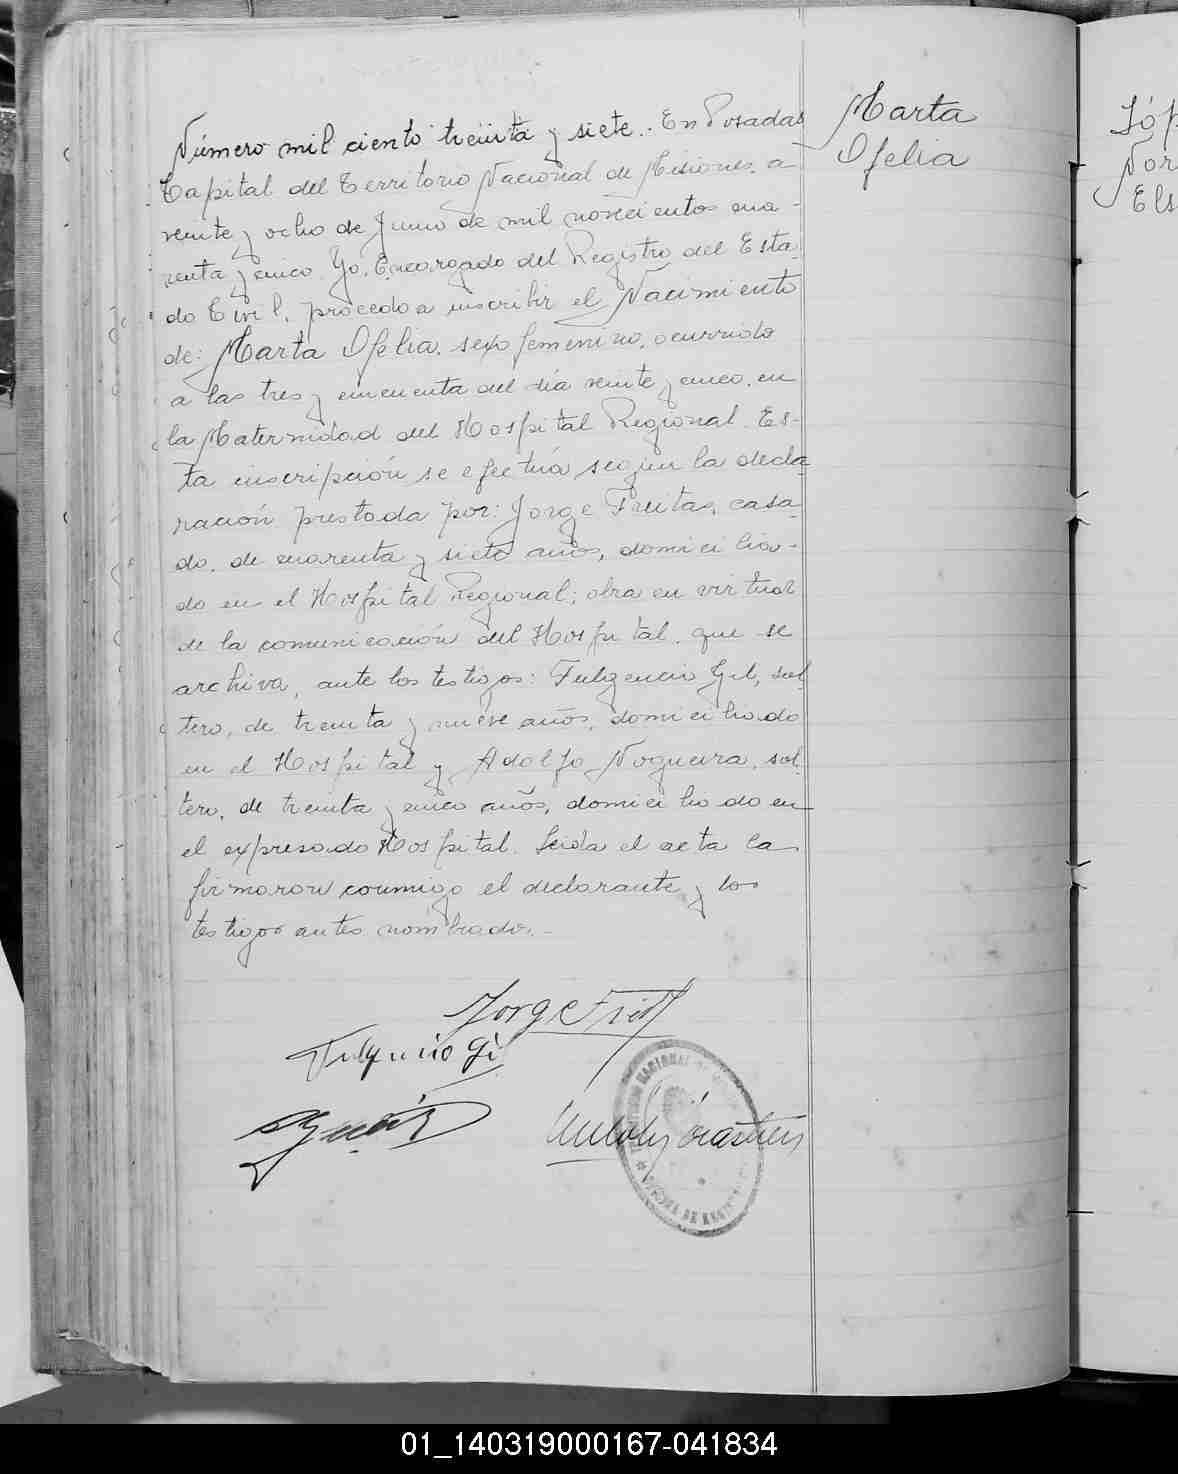 Número mil ciento treinta y siete.. En Posadas
Capital del Territorio Nacional de Misiones, a
veinte y ocho de Junio de mil novecientos cua-
renta y cinco. Yo, Encargado del Registro del Esta-
do Civil, procedo a inscribir el Nacimiento
de: Marta Ofelia, sexo femenino, ocurrido
a las tres y cincuenta del día veinte y cinco, en
la Maternidad del Hospital Regional. Es-
ta inscripción se efectúa según la decla-
ración prestada por: Jorge Freitas, casa-
do, de cuarenta y siete años, domicilia-
do en el Hospital Regional; obra en virtud
de la comunicación del Hospital, que se
archiva, ante los testigos: Fulgencio Gil, sol-
tero, de treinta y nueve años, domiciliado
en el Hospital y Adolfo Nogueira, sol-
tero, de treinta y cinco años, domiciliado en
el expresado Hospital. Leida el acta la
firmaron conmigo el declarante y los
testigos antes nombrado.-
Marta
Ofelia
Jorge
Fulgencio Gi
TERRITORIO NACIONAL DE
OFICINA DE
Lóp
Nor
Els
01_140319000167-041834